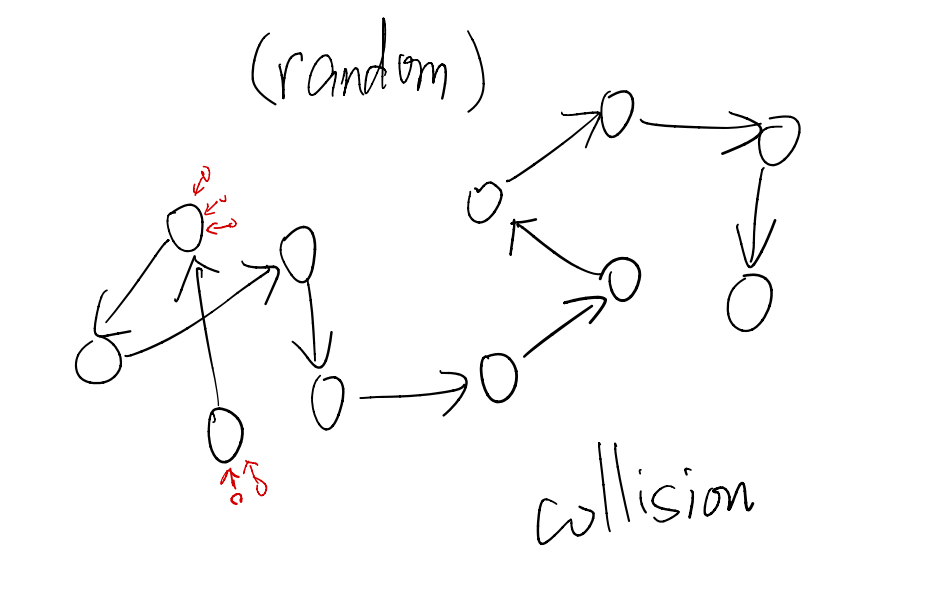 (random)
collision